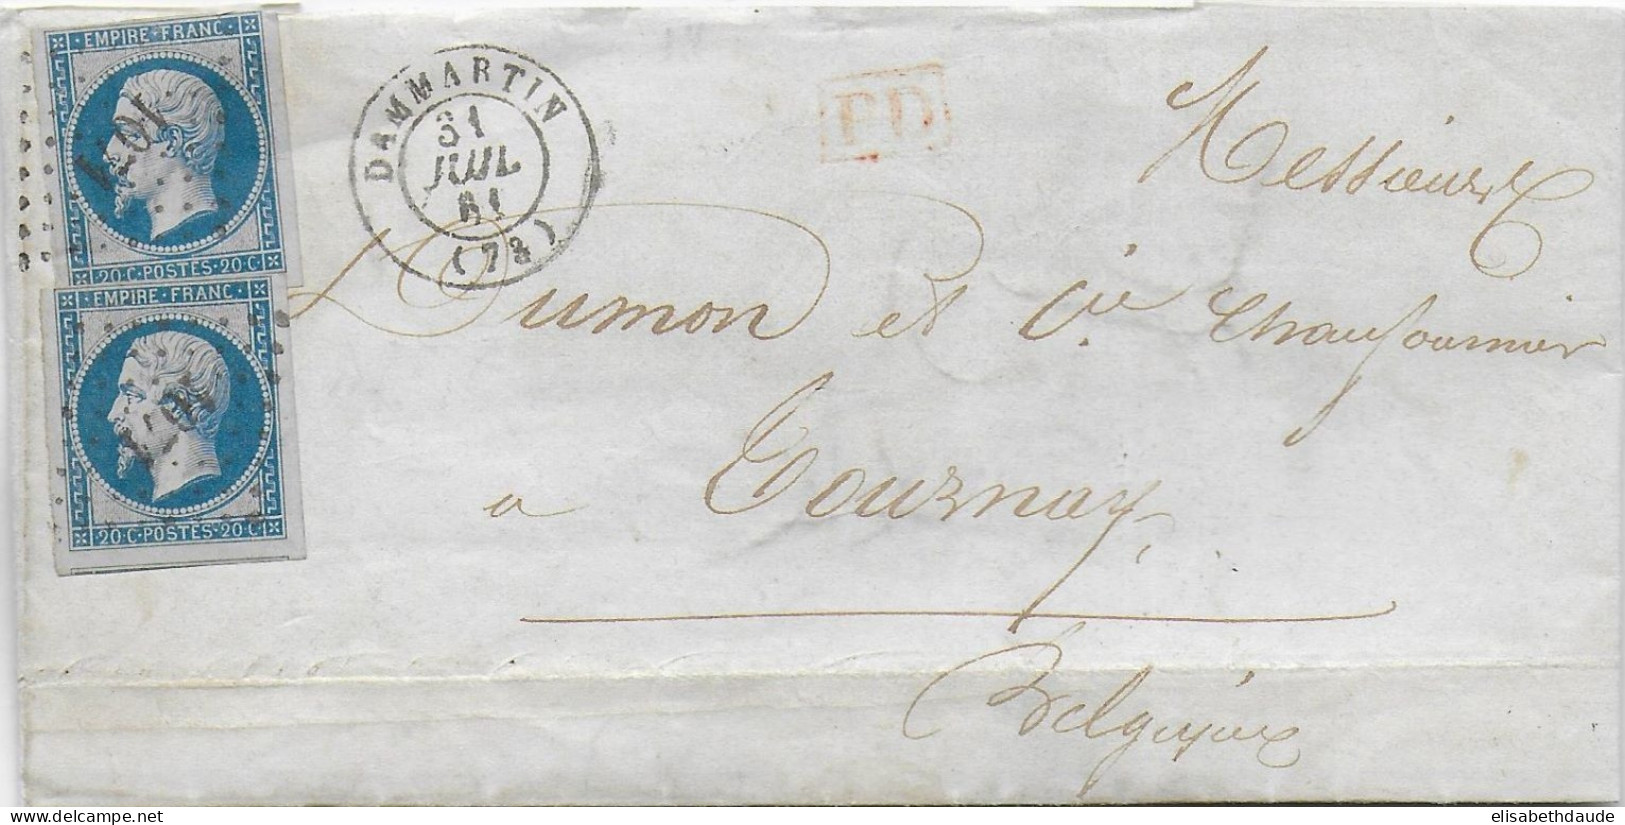 EMPIRE·FRANC·
1071
20·C·POSTES·20·C·
EMPIRE·FRANC·
1071
20·C·POSTES·20·C·
DAMMARTIN
31
JUIL
61
(73)
PD
Messieurs
Dumon et Cie Chaufournier
a Tournay
Belgique
elisabethdaude